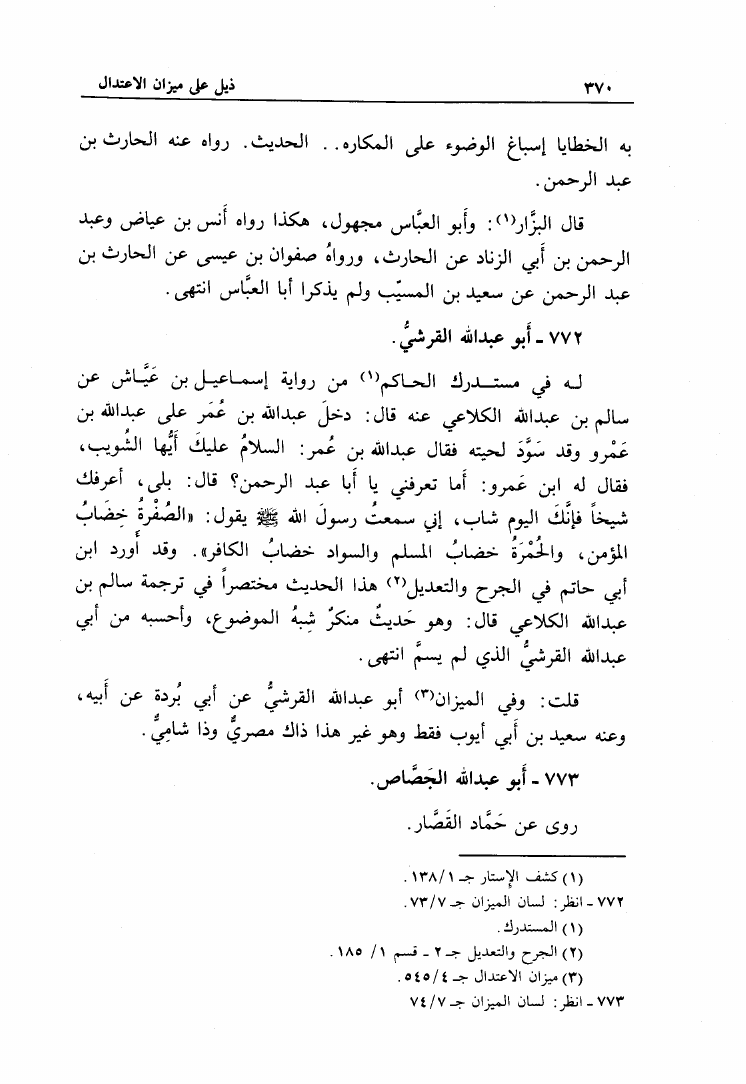 ٣٧٠ ذيل على ميزان الاعتدال
به الخطايا إسباغ الوضوء على المكاره.. الحديث. رواه عنه الحارث بن
عبد الرحمن.
قال البزَّار(١): وأَبو العبَّاس مجهول، هكذا رواه أَنس بن عياض وعبد
الرحمن بن أَبي الزناد عن الحارث، ورواهُ صفوان بن عيسى عن الحارث بن
عبد الرحمن عن سعيد بن المسيّب ولم يذكرا أبا العبَّاس انتهى.
٧٧٢ - أَبو عبدالله القرشيُّ.
لـه في مستـدرك الحـاكم(١) من رواية إسمـاعيـل بن عَيَّـاش عن
سالم بن عبدالله الكلاعي عنه قال: دخلَ عبدالله بن عُمَر على عبدالله بن
عَمْرو وقد سَوَّدَ لحيته فقال عبدالله بن عُمر: السلامُ عليكَ أَيُّها الشُويب،
فقال له ابن عَمرو: أما تعرفني يا أَبا عبد الرحمن؟ قال: بلى، أعرفك
شيخاً فإنَّكَ اليوم شاب، إني سمعتُ رسولَ الله ﷺ يقول: «الصُفْرةُ خِضَابُ
المؤمن، والحُمْرَةُ خضابُ المسلم والسواد خضابُ الكافر». وقد أَورد ابن
أبي حاتم في الجرح والتعديل(٢) هذا الحديث مختصراً في ترجمة سالم بن
عبدالله الكلاعي قال: وهو حَديثٌ منكرٌ شِبهُ الموضوع، وأحسبه من أبي
عبدالله القرشيُّ الذي لم يسمَّ انتهى.
قلت: وفي الميزان(٣) أبو عبدالله القرشيُّ عن أبي بُردة عن أَبيه،
وعنه سعيد بن أَبي أيوب فقط وهو غير هذا ذاك مصريٌّ وذا شامِيٌّ.
٧٧٣ - أَبو عبدالله الجَصَّاص.
روى عن حَمَّاد القَصَّار.
(١) كشف الإستار جـ ١/ ١٣٨.
٧٧٢ - انظر: لسان الميزان جـ ٧/ ٧٣.
(١) المستدرك.
(٢) الجرح والتعديل جـ ٢ - قسم ١/ ١٨٥.
(٣) ميزان الاعتدال جـ ٤/ ٥٤٥.
٧٧٣ - انظر: لسان الميزان جـ ٧/ ٧٤